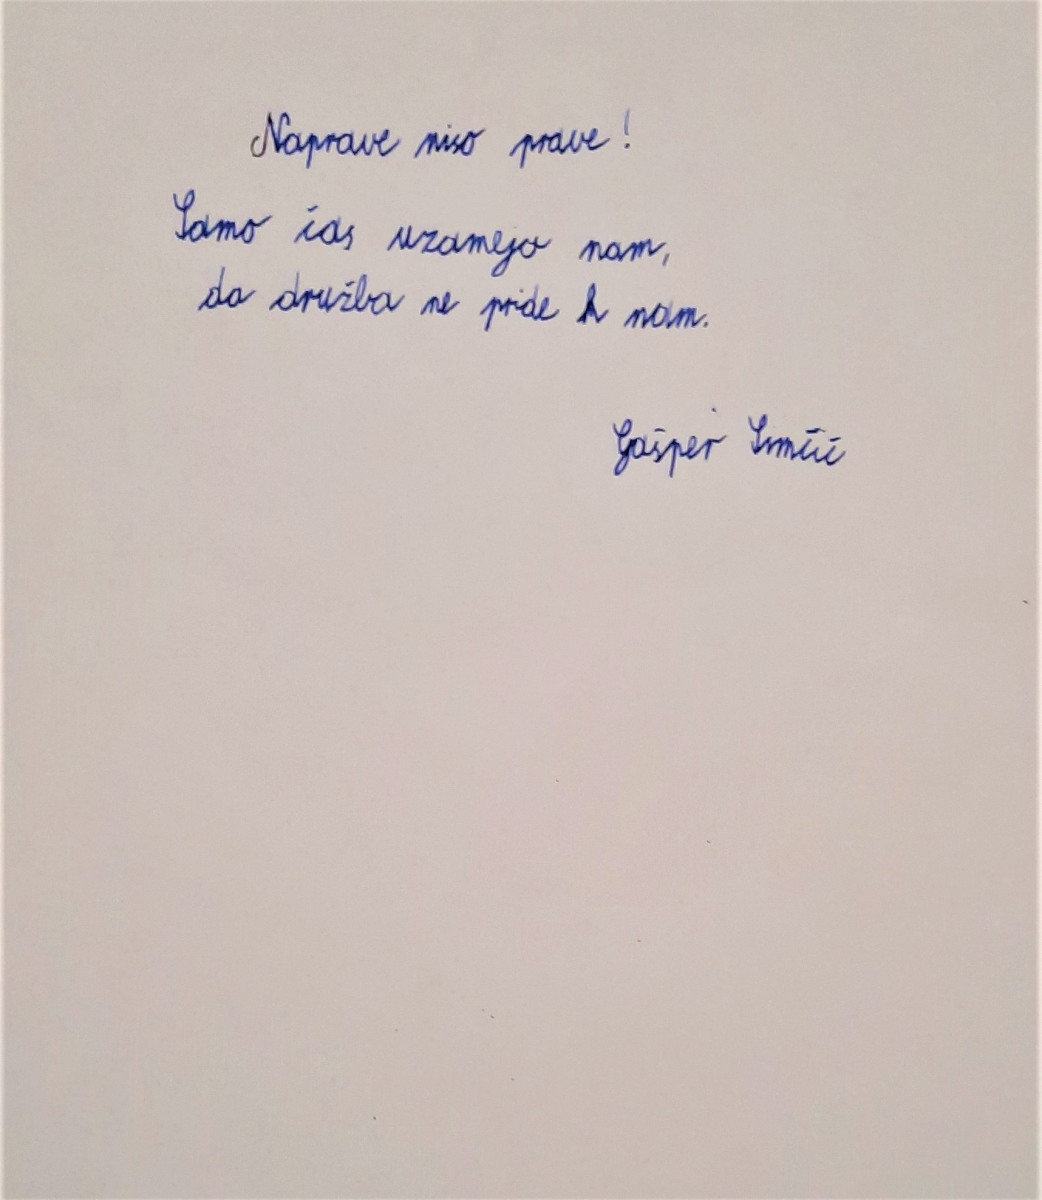 Naprave niso prave!
Samo čas uzamejo nam,
da družba ne pride k nam.
Gašper